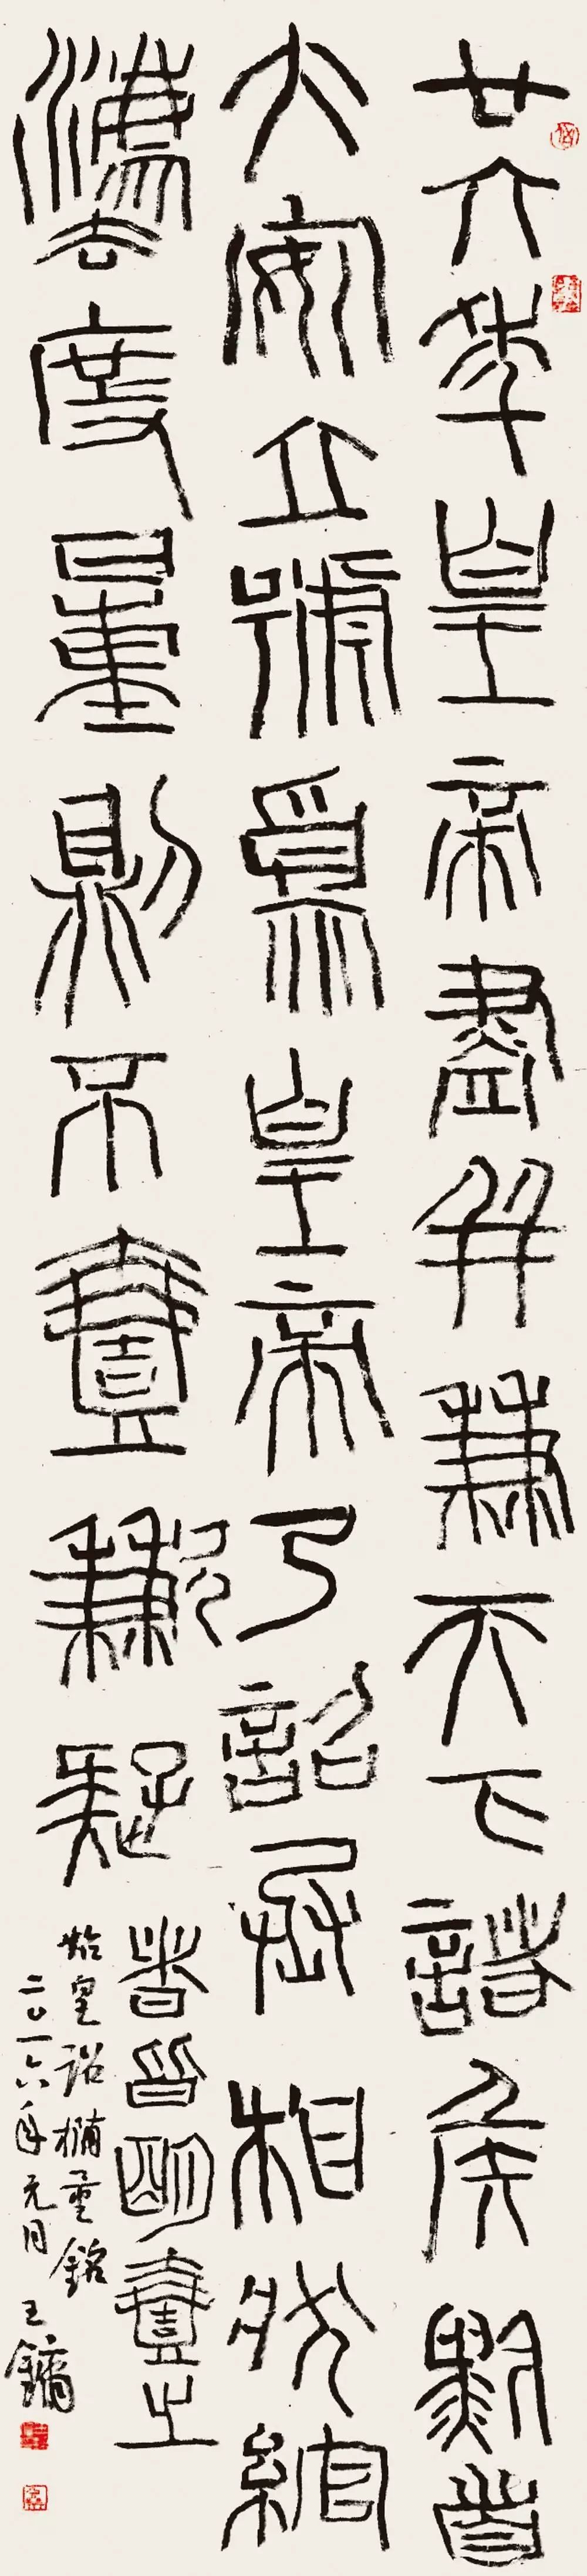 廿六年皇帝盡并兼天下諸侯黔首
大安立號爲皇帝乃詔丞相狀綰
灋度量則不壹歉疑
者皆明壹之
始皇詔橢量銘
二〇一六年元月 王鏞